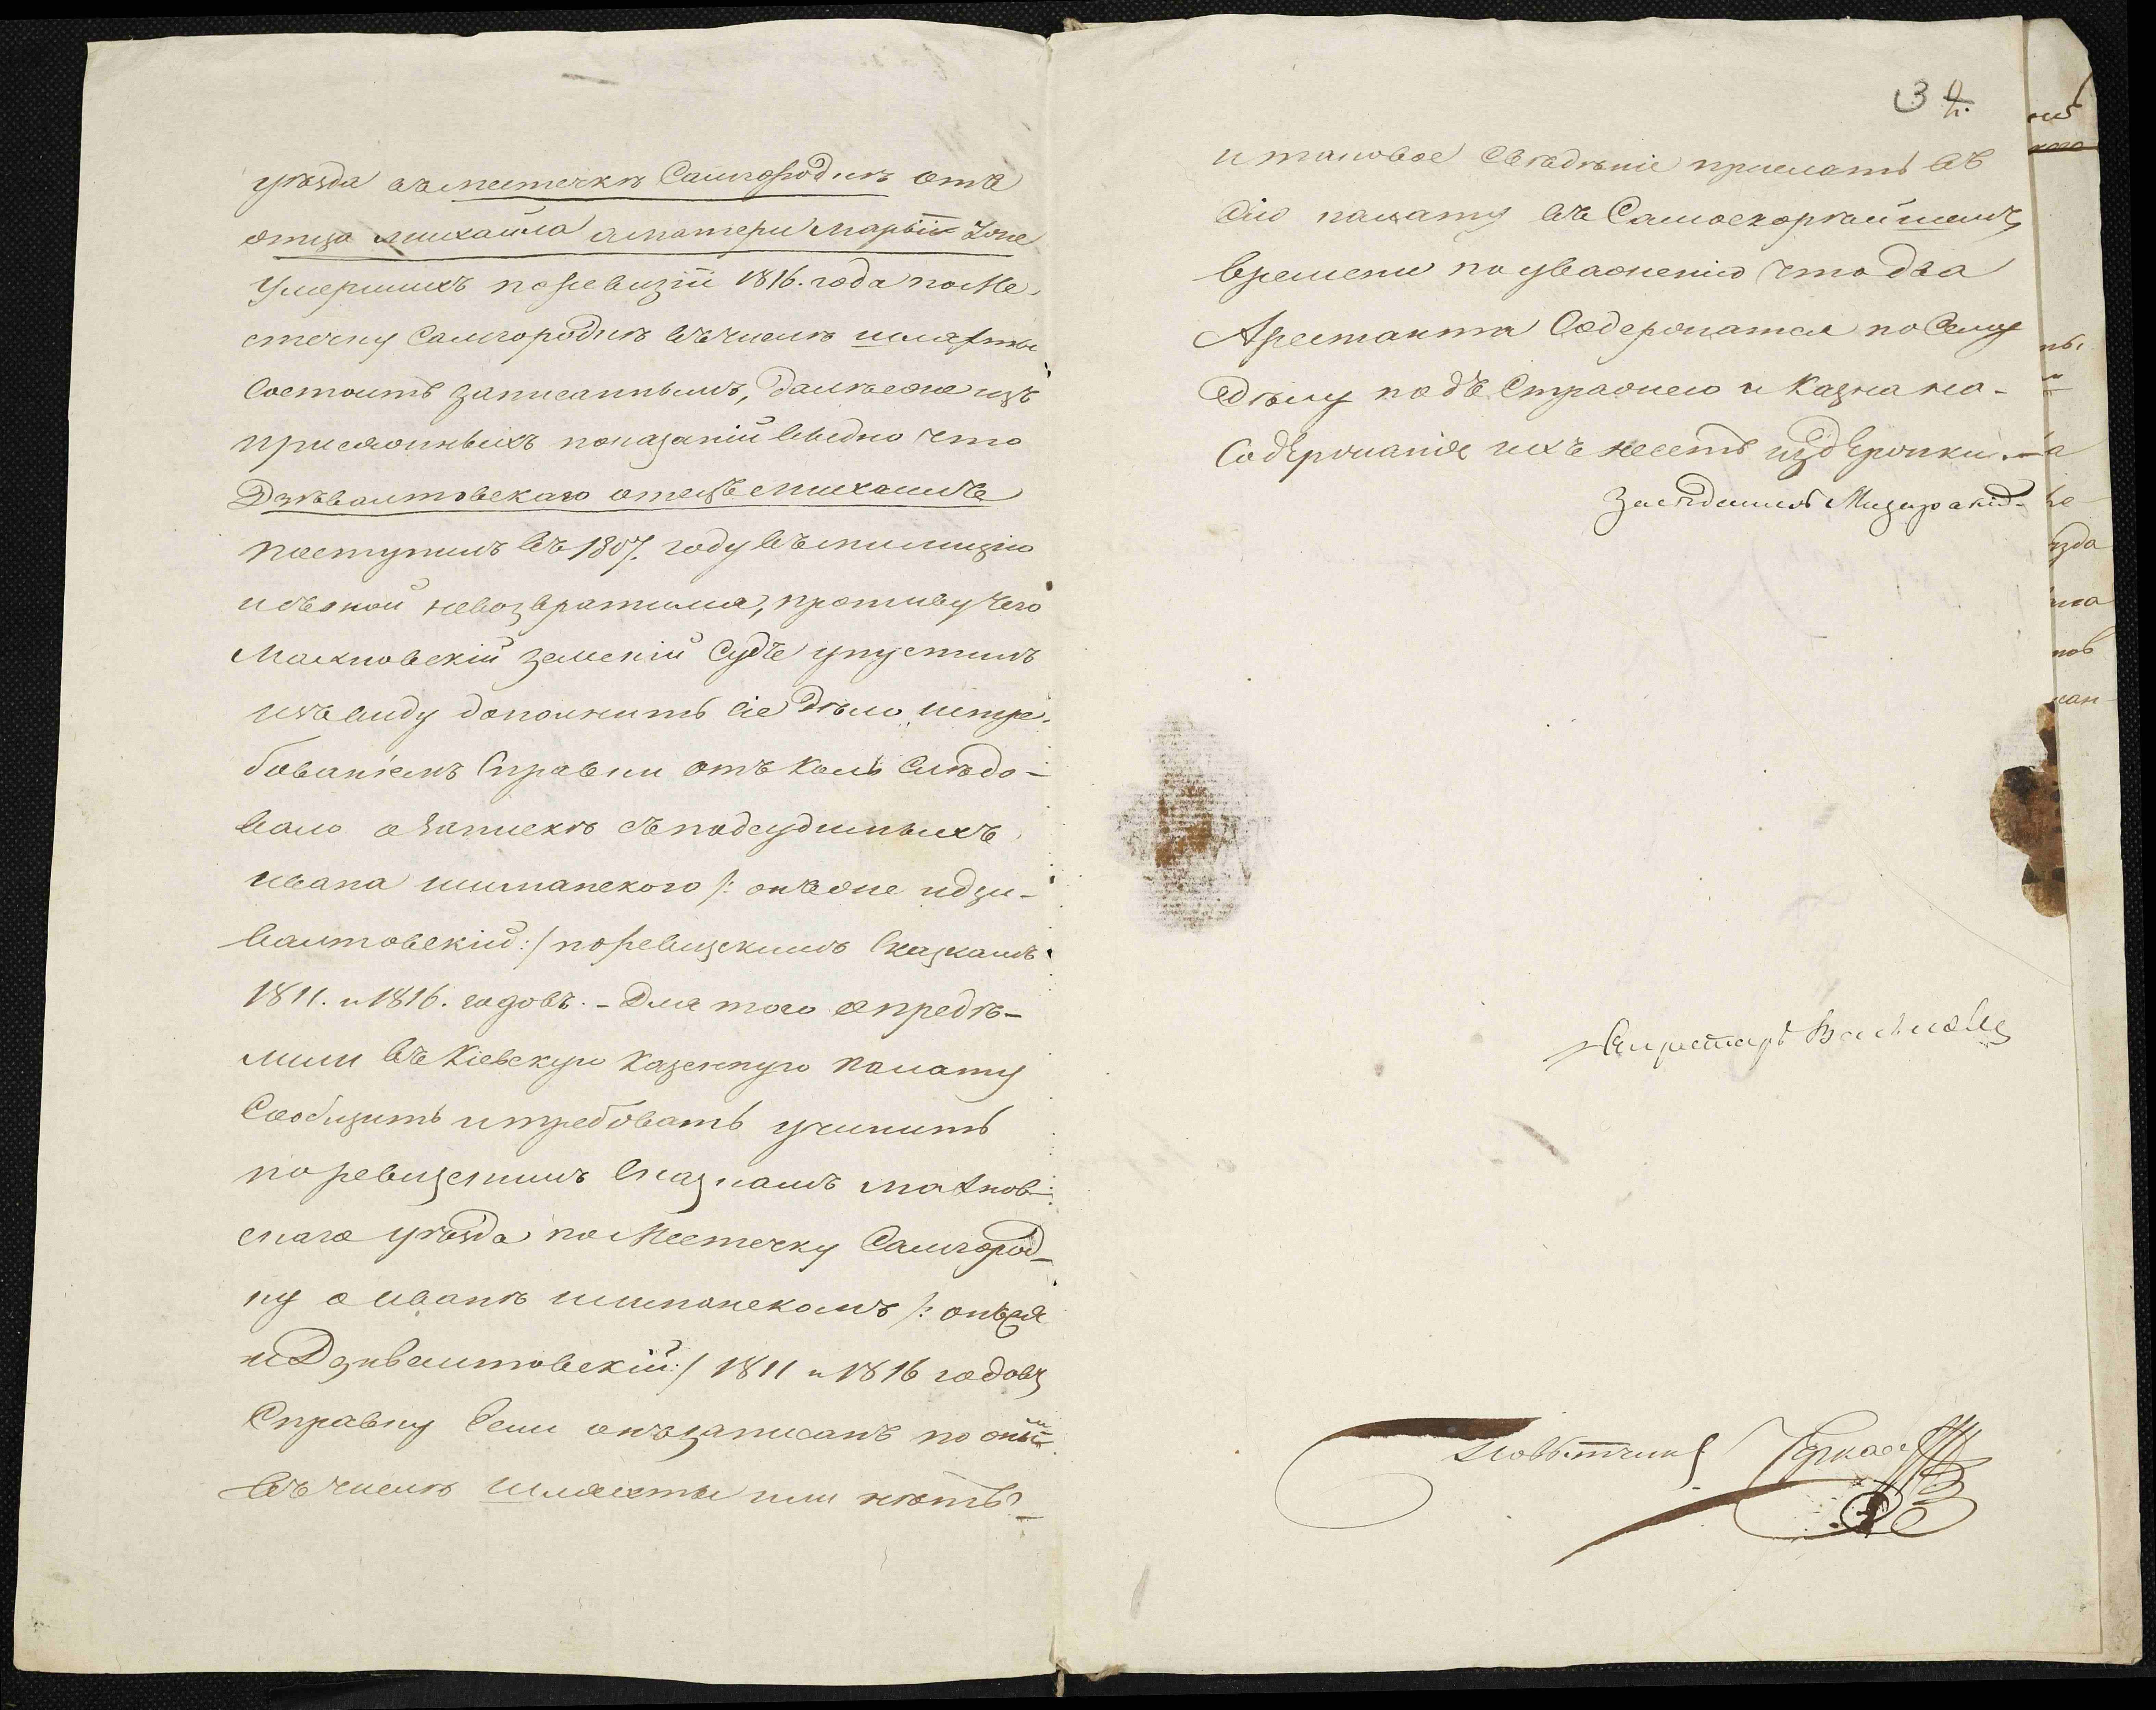 уѣзда въ местечкѣ Самгородкѣ отъ
отца михайла аматери Марыи
Умершихъ поревизіи 1816. года поМе-
стечку Самгородкѣ въ числѣ шляхты
Состоитъ записаннымъ, далѣеже изъ
присяжныхъ показаній видно что
Дзѣвалтовскаго отецъ михаилъ
поступилъ въ 1807. году въ милицію
и съоной невозвратился, противу чего
Махновскій земскій Судъ упустилъ
изъ виду дополнить сіе дѣло истре-
бованіемъ Справки отъ Коль Слѣдо-
вало о запискѣ съ подсудимыхъ
ивана шиманского /: онъже идзи-
валтовскій :/ поревизскимъ Сказкамъ
1811. и 1816. годовъ. - Для того опредѣ-
лили въ Кіевскую Казенную палату
Сообщить итребовать учинить
по ревизскимъ Сказкамъ махнов-
скаго уѣзда по Местечку Самгород-
ку о иванѣ шиманскомъ /: онъже
и Дзивалтовскій :/ 1811 и 1816 годовъ
Справку если онъ записанъ по оный
въ числѣ шляхты или нѣтъ? -
3 2.
и таковое Свѣдѣніе прислать въ
сію палату въ Самоскорѣйшемъ
времени по уваженію что два
Арестанта Содержатся по Сему
дѣлу подъ Стражею и Казна на-
Содержанія ихъ несетъ издержки. -
Секретарь
Повытчикъ